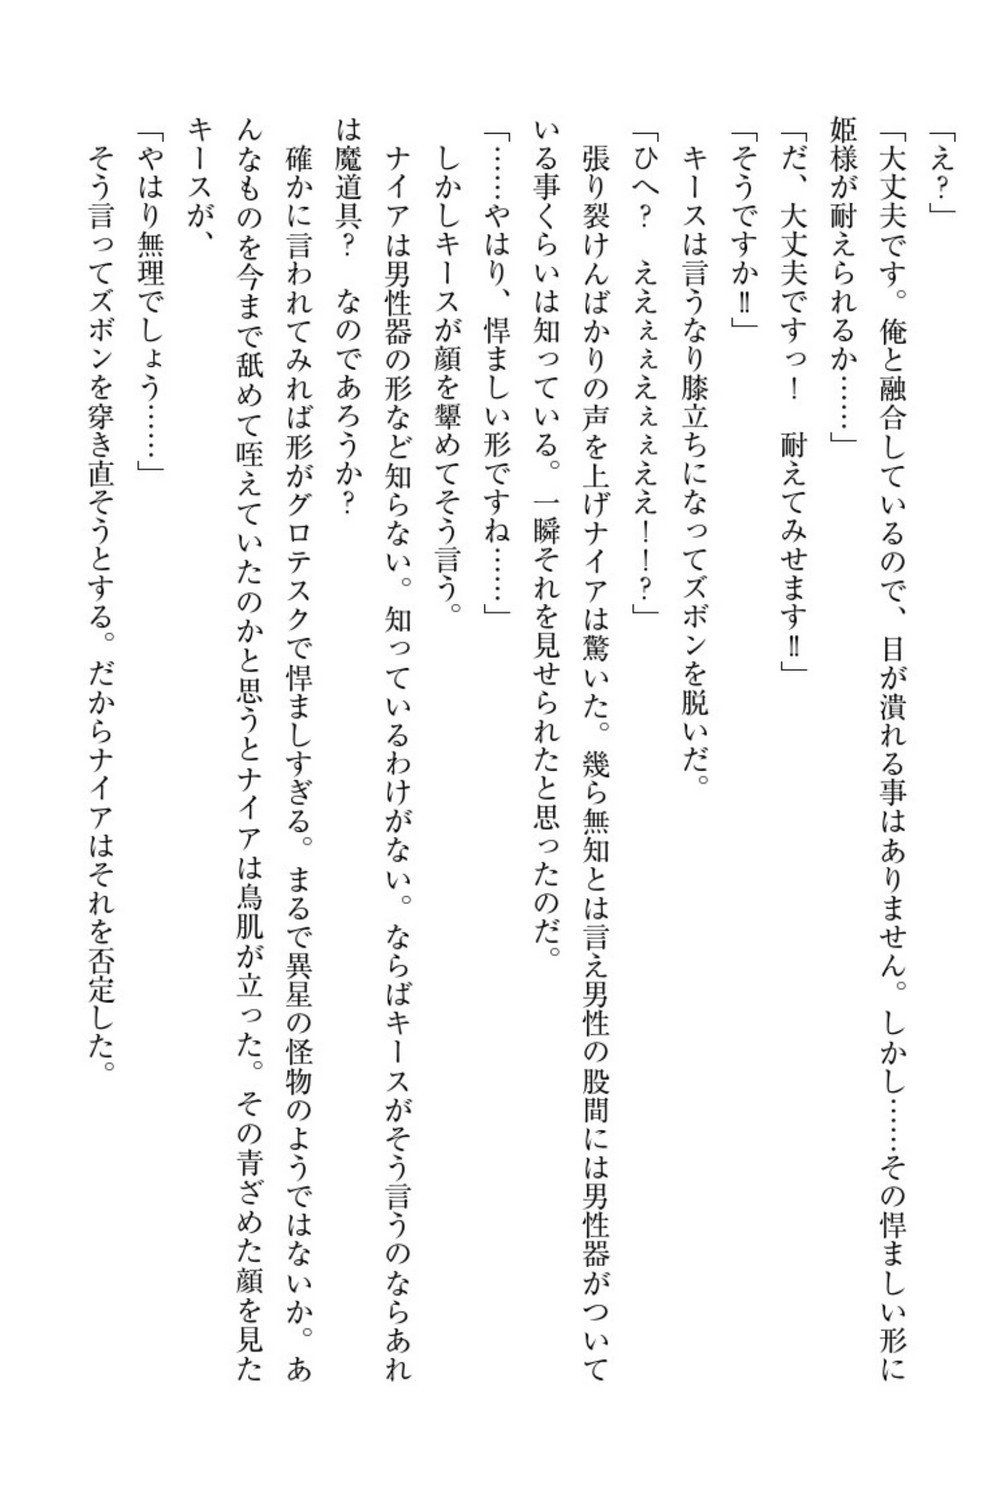 「え？」
「大丈夫です。俺と融合しているので、目が潰れる事はありません。しかし……その悍ましい形に
姫様が耐えられるか……」
「だ、大丈夫ですっ！　耐えてみせます‼」
「そうですか‼」
　キースは言うなり膝立ちになってズボンを脱いだ。
「ひへ？　ええぇぇえぇぇええ！！？」
　張り裂けんばかりの声を上げナイアは驚いた。幾ら無知とは言え男性の股間には男性器がついて
いる事くらいは知っている。一瞬それを見せられたと思ったのだ。
「……やはり、悍ましい形ですね……」
　しかしキースが顔を顰めてそう言う。
　ナイアは男性器の形など知らない。知っているわけがない。ならばキースがそう言うのならあれ
は魔道具？　なのであろうか？
　確かに言われてみれば形がグロテスクで悍ましすぎる。まるで異星の怪物のようではないか。あ
んなものを今まで舐めて咥えていたのかと思うとナイアは鳥肌が立った。その青ざめた顔を見た
キースが、
「やはり無理でしょう……」
　そう言ってズボンを穿き直そうとする。だからナイアはそれを否定した。